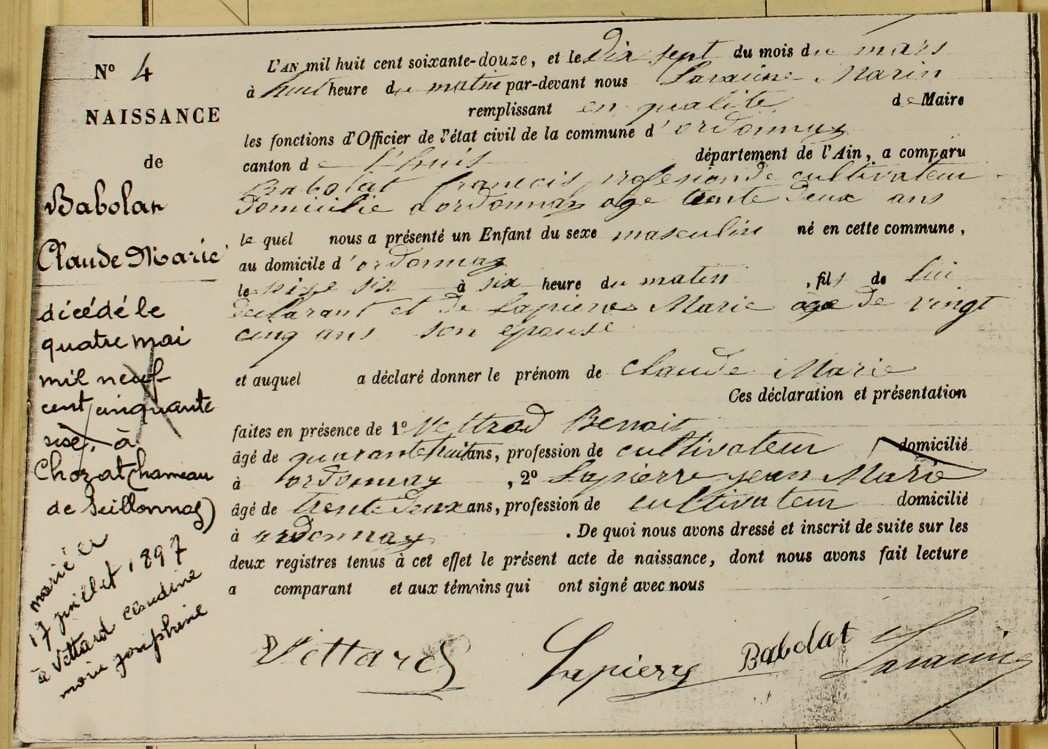 N° 4
NAISSANCE
de
Babolat
Claude Marie
décédé le
quatre mai
mil neuf
cent cinquante
sise, à
Chozat (hameau
de Seillonnaz)
marié le
17 juillet 1897
à Vettard claudine
marie joséphine
L'AN mil huit cent soixante-douze, et le Dix sept du mois du mars
à huit heure du matin par-devant nous Savarine Marin
remplissant en qualité de Maire
les fonctions d'Officier de l'état civil de la commune d'ordonnaz
canton de l'huis département de l'Ain, a comparu
Babolat francois, profession de cultivateur
domicilie a ordonnaz age trente deux ans
le quel nous a présenté un Enfant du sexe masculin né en cette commune,
au domicile d'ordonnaz
le à six heure du matin, fils de lui
declarant et de Lapierre Marie age de vingt
cinq ans son epouse
et auquel a déclaré donner le prénom de Claude Marie
Ces déclaration et présentation
faites en présence de 1° Vettrad Benoit
âgé de quarante huit ans, profession de cultivateur domicilié
à ordonnaz, 2° Lapierre jean Marie
âgé de trente deux ans, profession de cultivateur domicilié
à ordonnaz. De quoi nous avons dressé et inscrit de suite sur les
deux registres tenus à cet effet le présent acte de naissance, dont nous avons fait lecture
a comparant et aux témoins qui ont signé avec nous
Vettard Lapierre Babolat Savarin